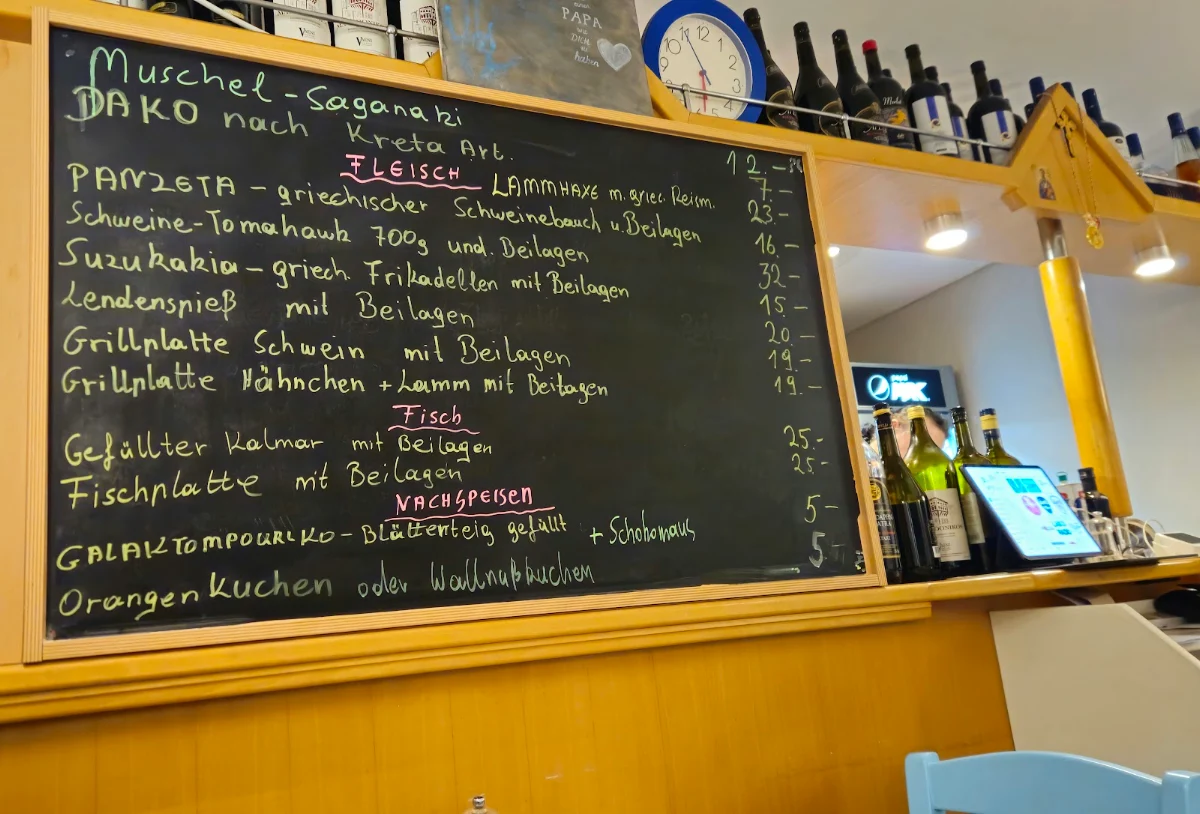 PAPA
Muschel-Saganaki 12.-
DAKO nach Kreta Art. 7.-
FLEISCH LAMMHAXE m. griec. Reisn. 23.-
PANZETA - griechischer Schweinebauch u. Beilagen 16.-
Schweine-Tomahauk 700g und. Beilagen 32-
Suzukakia - griech. Frikadellen mit Beilagen 15.-
Lendenspieß mit Beilagen 20.-
Grillplatte Schwein mit Beilagen 19.-
Grillplatte Hähnchen + Lamm mit Beilagen 19.-
Fisch
Gefüllter Kalmar mit Beilagen 25.-
Fischplatte mit Beilagen 25-
NACHSPEISEN
GALAKTOMPOUREKO - Blätterteig gefüllt + Schokomaus 5-
Orangenkuchen oder Wallnußkuchen 5.-